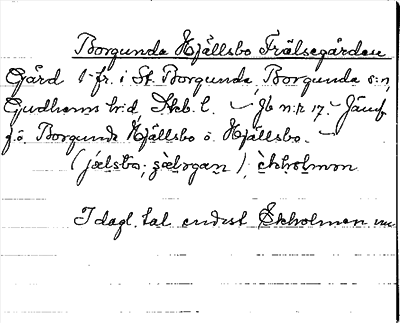 Borgunda Hjällsbo Frälsegården
Gård 1 fr. i St. Borgunda, Borgunda s:n,
Gudhems h:d Skb. l. — Jb n:r 17. — Jämf
f.ö. Borgunda Hjällsbo o. Hjällsbo. —
(jælsbo; sælsgan), èkholmən
I dagl. tal endast Ekholmen